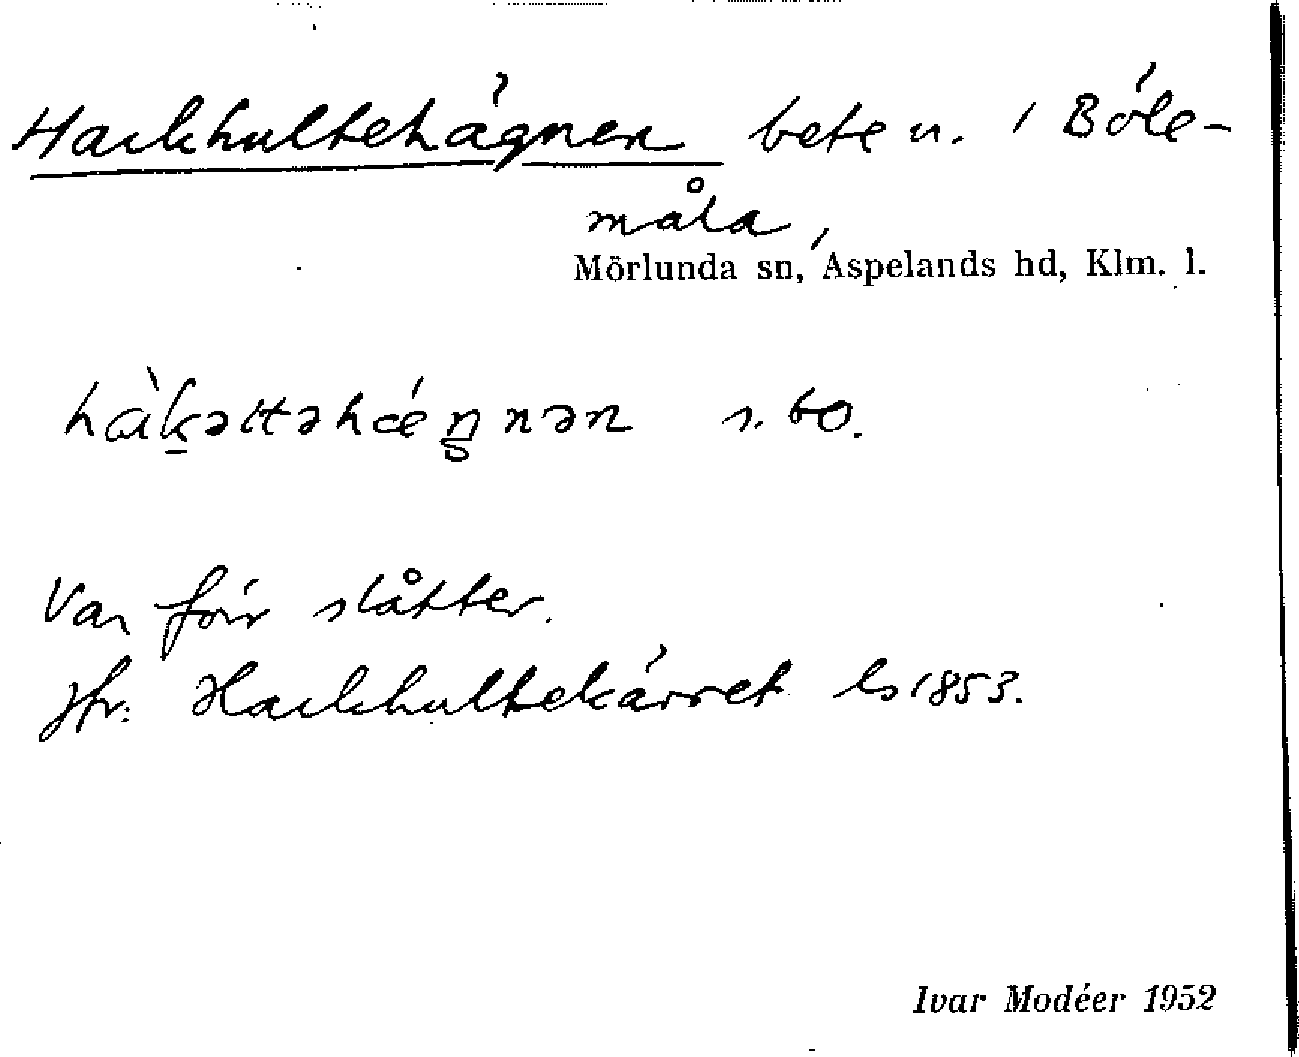 Hackhultehägnen beten. i Böle-
måla,
Mörlunda sn, Aspelands hd, Klm. l.
hàk̠əltəhǽŋnən s. bo.
Var förr slåtter.
Jfr. Hackhultekärret ls 1853.
Ivar Modéer 1952